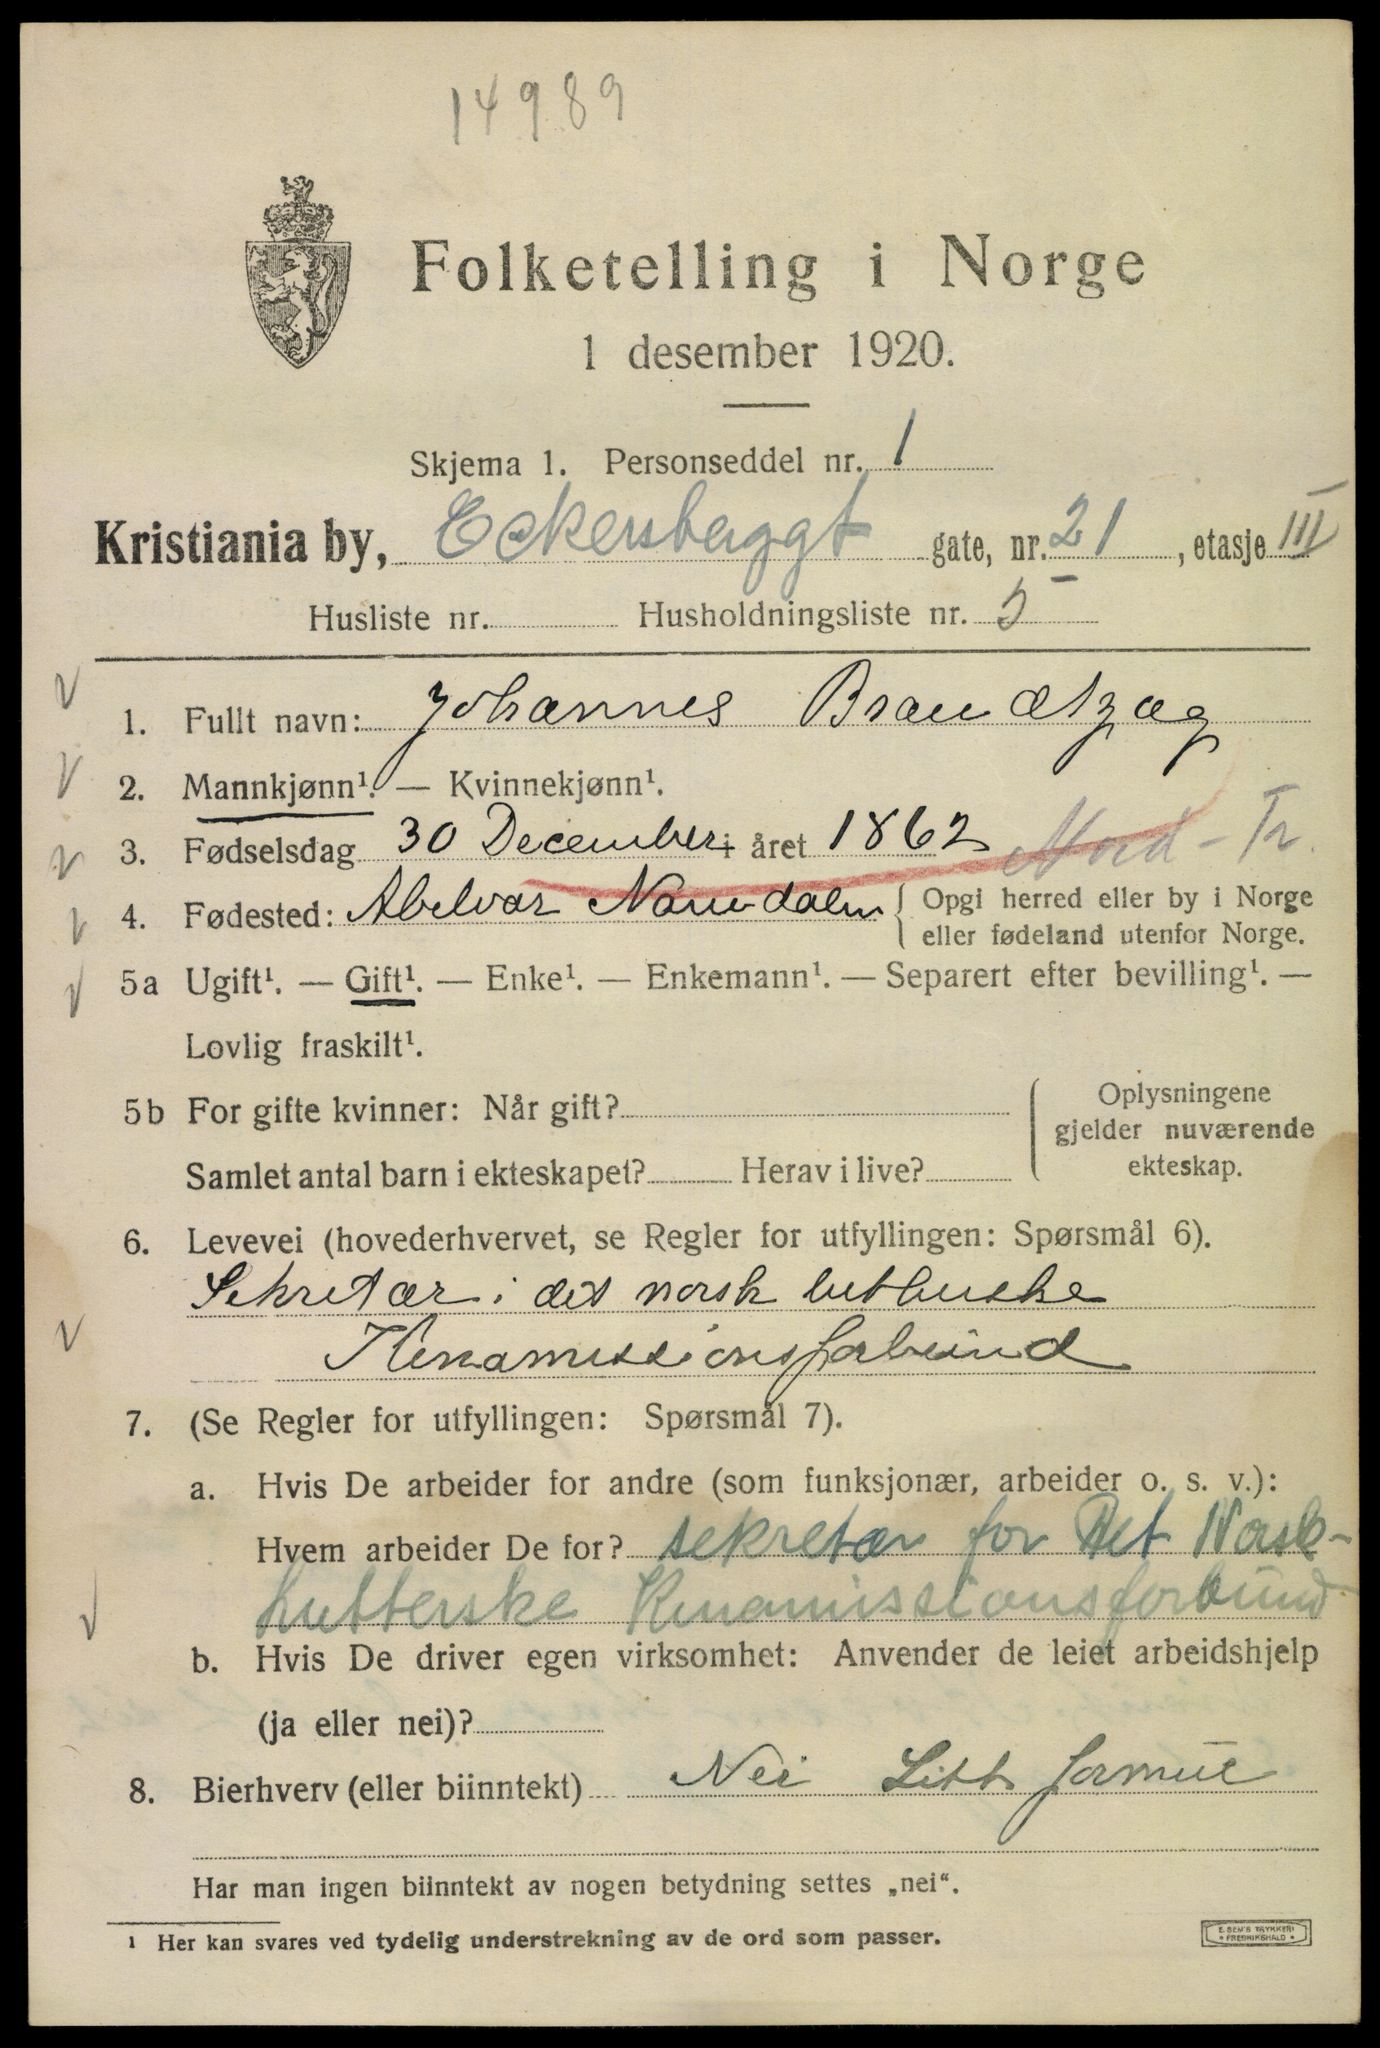 14989
Folketelling i Norge
1 desember 1920.
Skjema 1. Personseddel nr. 1
Kristiania by, Eckersberggt gate, nr. 21, etasje III
Husliste nr. Husholdningsliste nr. 5
1. Fullt navn: Johannes Brandtzæg
2. Mannkjønn¹. — Kvinnekjønn¹.
3. Fødselsdag 30 December i året 1862 Nord-Tr.
4. Fødested: Abelvær Namdalen { Opgi herred eller by i Norge
eller fødeland utenfor Norge.
5a Ugift¹. — Gift¹. — Enke¹. — Enkemann¹. — Separert efter bevilling¹. —
Lovlig fraskilt¹.
5b For gifte kvinner: Når gift? Oplysningene
gjelder nuværende
Samlet antal barn i ekteskapet? Herav i live? ekteskap.
6. Levevei (hovederhvervet, se Regler for utfyllingen: Spørsmål 6).
Sekretær i det norsk lutherske
Kinamissionsforbund
7. (Se Regler for utfyllingen: Spørsmål 7).
a. Hvis De arbeider for andre (som funksjonær, arbeider o. s. v.):
Hvem arbeider De for? sekretær for Det Norsk-
lutterske Kinamissionsforbund
b. Hvis De driver egen virksomhet: Anvender de leiet arbeidshjelp
(ja eller nei)?
8. Bierhverv (eller biinntekt) Nei Litt formue
Har man ingen biinntekt av nogen betydning settes „nei“.
¹ Her kan svares ved tydelig understrekning av de ord som passer.
E. SEM'S TRYKKERI
* FREDRIKSHALD *